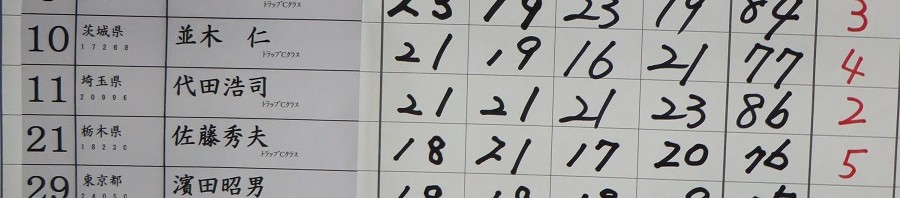 23 19 23 19 84 3
10 茨城県 並木 仁 21 19 16 21 77 4
17268 トラップCクラス
11 埼玉県 代田浩司 21 21 21 23 86 2
20996 トラップCクラス
21 栃木県 佐藤秀夫 18 21 17 20 76 5
18230 トラップCクラス
29 東京都 濱田昭男